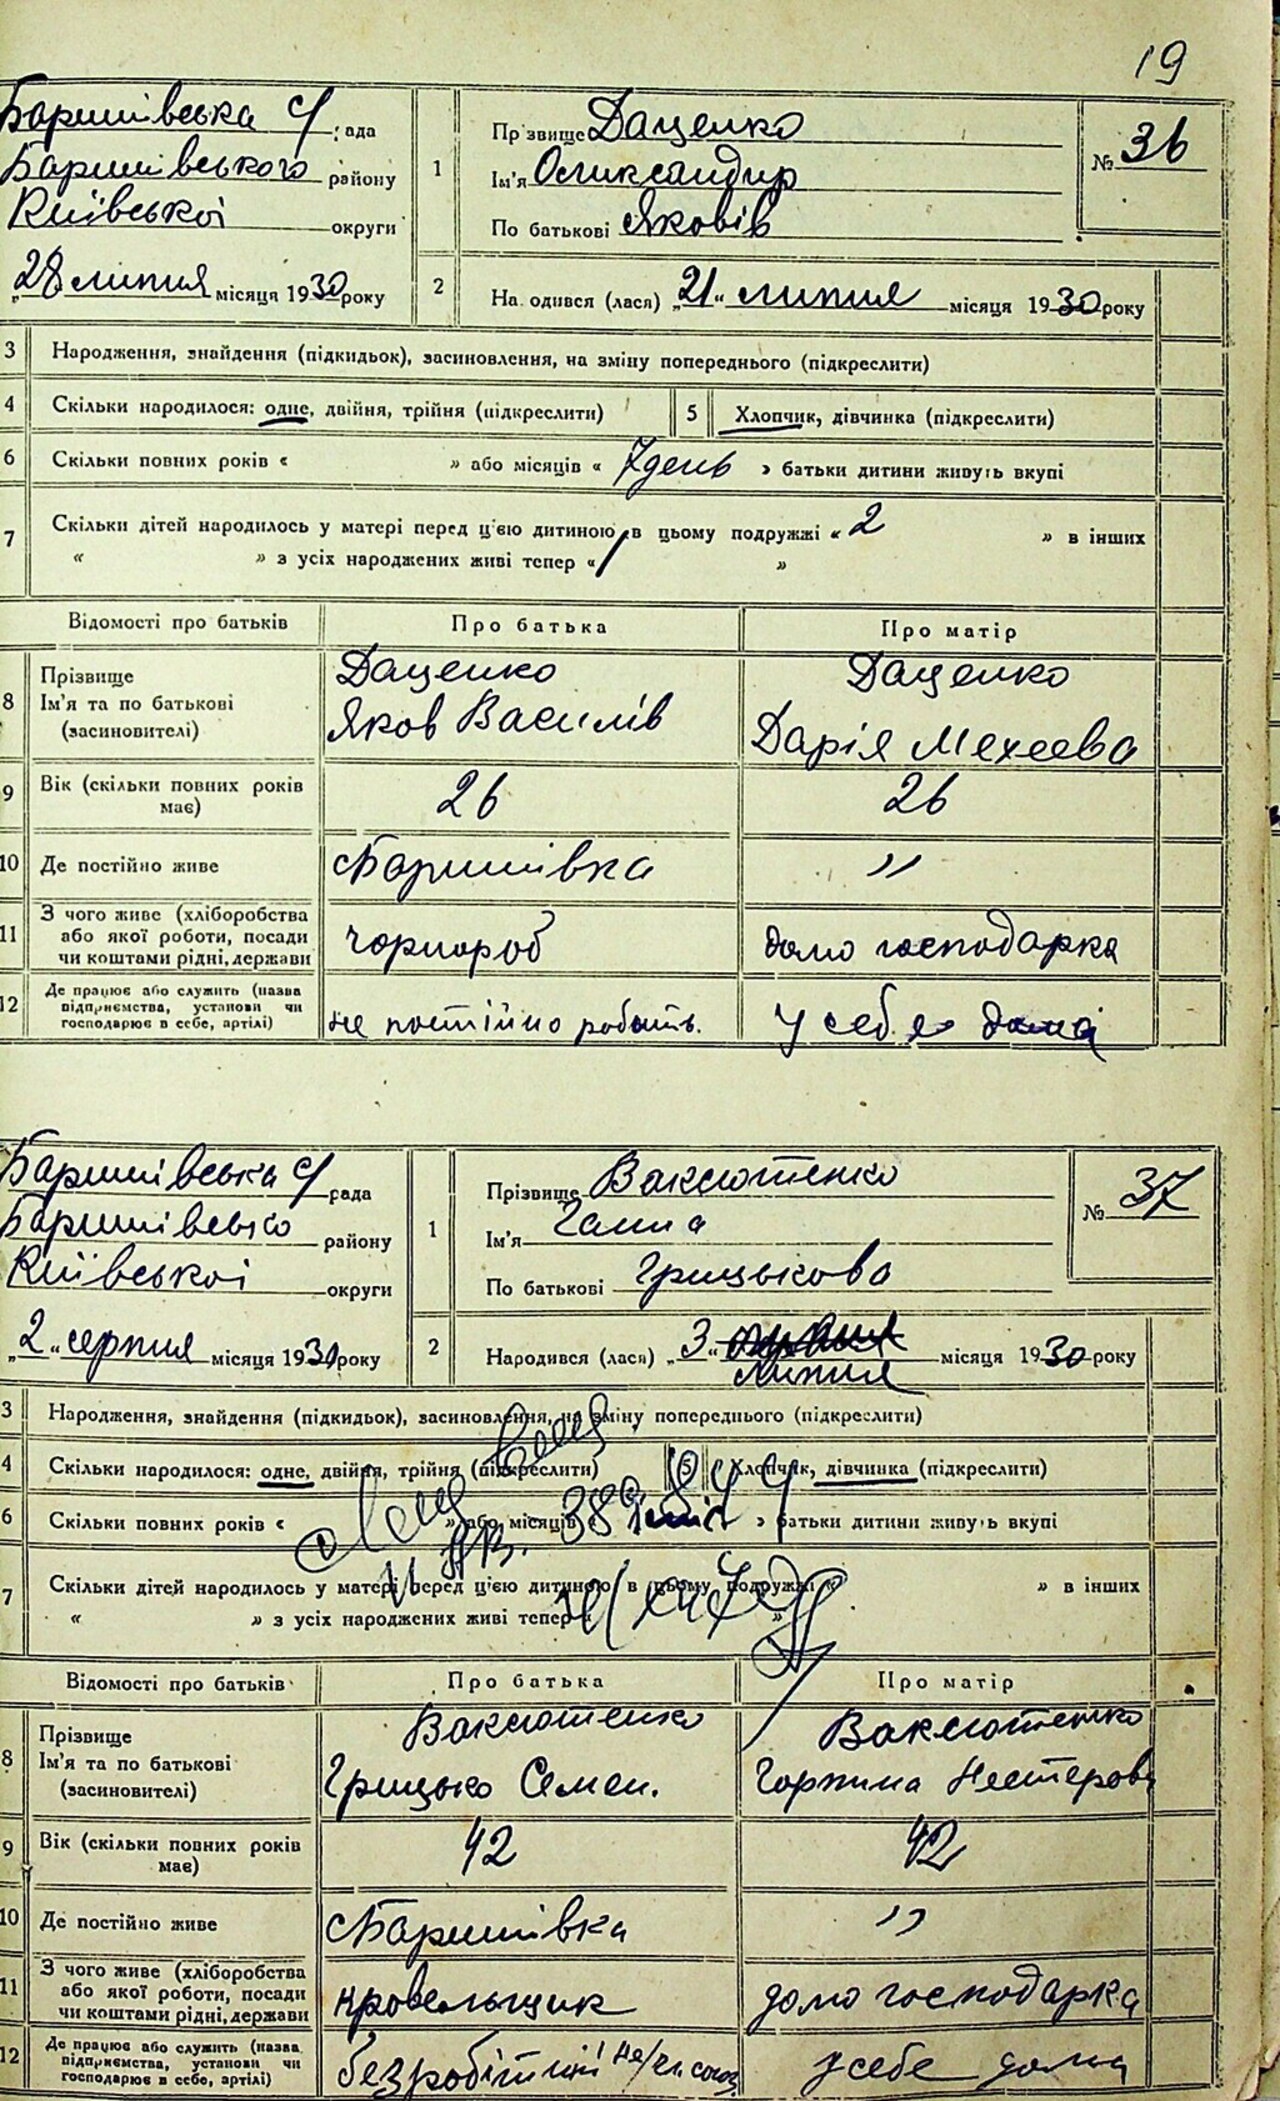 19
Баришівська с/рада
Баришівського району
Київської округи
„28 липня місяця 1930 року
1
Пр звище Даценко
Ім'я Оликсандир
По батькові Яковів
№ 36
2
На одився (лася) „21“ липня місяця 1930 року
3 Народження, знайдення (підкидьок), засиновлення, на зміну попереднього (підкреслити)
4 Скільки народилося: одне, двійня, трійня (підкреслити) 5 Хлопчик, дівчинка (підкреслити)
6 Скільки повних років « » або місяців « 7 день » батьки дитини живуть вкупі
7 Скільки дітей народилось у матері перед ц'єю дитиною в цьому подружжі « 2 » в інших
« » з усіх народжених живі тепер « 1 »
Відомості про батьків Про батька Про матір
8 Прізвище Ім'я та по батькові (засиновителі)
Даценко Яков Василів
Даценко Дарія Мехеева
9 Вік (скільки повних років має) 26 26
10 Де постійно живе Баришівка 〃
11 З чого живе (хліборобства або якої роботи, посади чи коштами рідні, держави
чорнороб
домогосподарка
12 Де працює або служить (назва підприємства, установи чи господарює в себе, артілі)
не постійно робить.
у себе дома
Баришівська с/рада
Баришівсько району
Київської округи
„2“ серпня місяця 1930 року
1
Прізвище Ваксютенко
Ім'я Ганна
По батькові Грицькова
№ 37
2
Народився (лася) „3“ липня місяця 1930 року
3 Народження, знайдення (підкидьок), засиновлення, на зміну попереднього (підкреслити)
4 Скільки народилося: одне, двійня, трійня (підкреслити) 5 Хлопчик, дівчинка (підкреслити)
6 Скільки повних років « » або місяців « » батьки дитини живуть вкупі
7 Скільки дітей народилось у матері перед ц'єю дитиною в цьому подружжі « » в інших
« » з усіх народжених живі тепер « »
Відомості про батьків Про батька Про матір
8 Прізвище Ім'я та по батькові (засиновителі)
Ваксютенко Грицько Семен.
Ваксютенко Горпина Нестерова
9 Вік (скільки повних років має) 42 42
10 Де постійно живе Баришівка 〃
11 З чого живе (хліборобства або якої роботи, посади чи коштами рідні, держави
кровельщик
домогосподарка
12 Де працює або служить (назва підприємства, установи чи господарює в себе, артілі)
безробітний не/чл. союз.
у себе дома